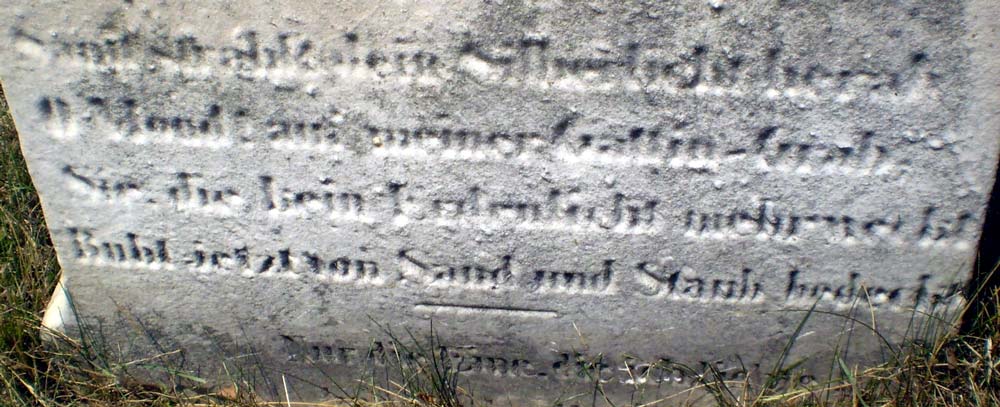 Sanft strahl dein Silberlicht herab
O Mond! auf meiner Gattin Grab;
Sie, die kein Erdenlicht mehr weckt
Ruht jetzt von Sand und Staub bedeckt
Nur die